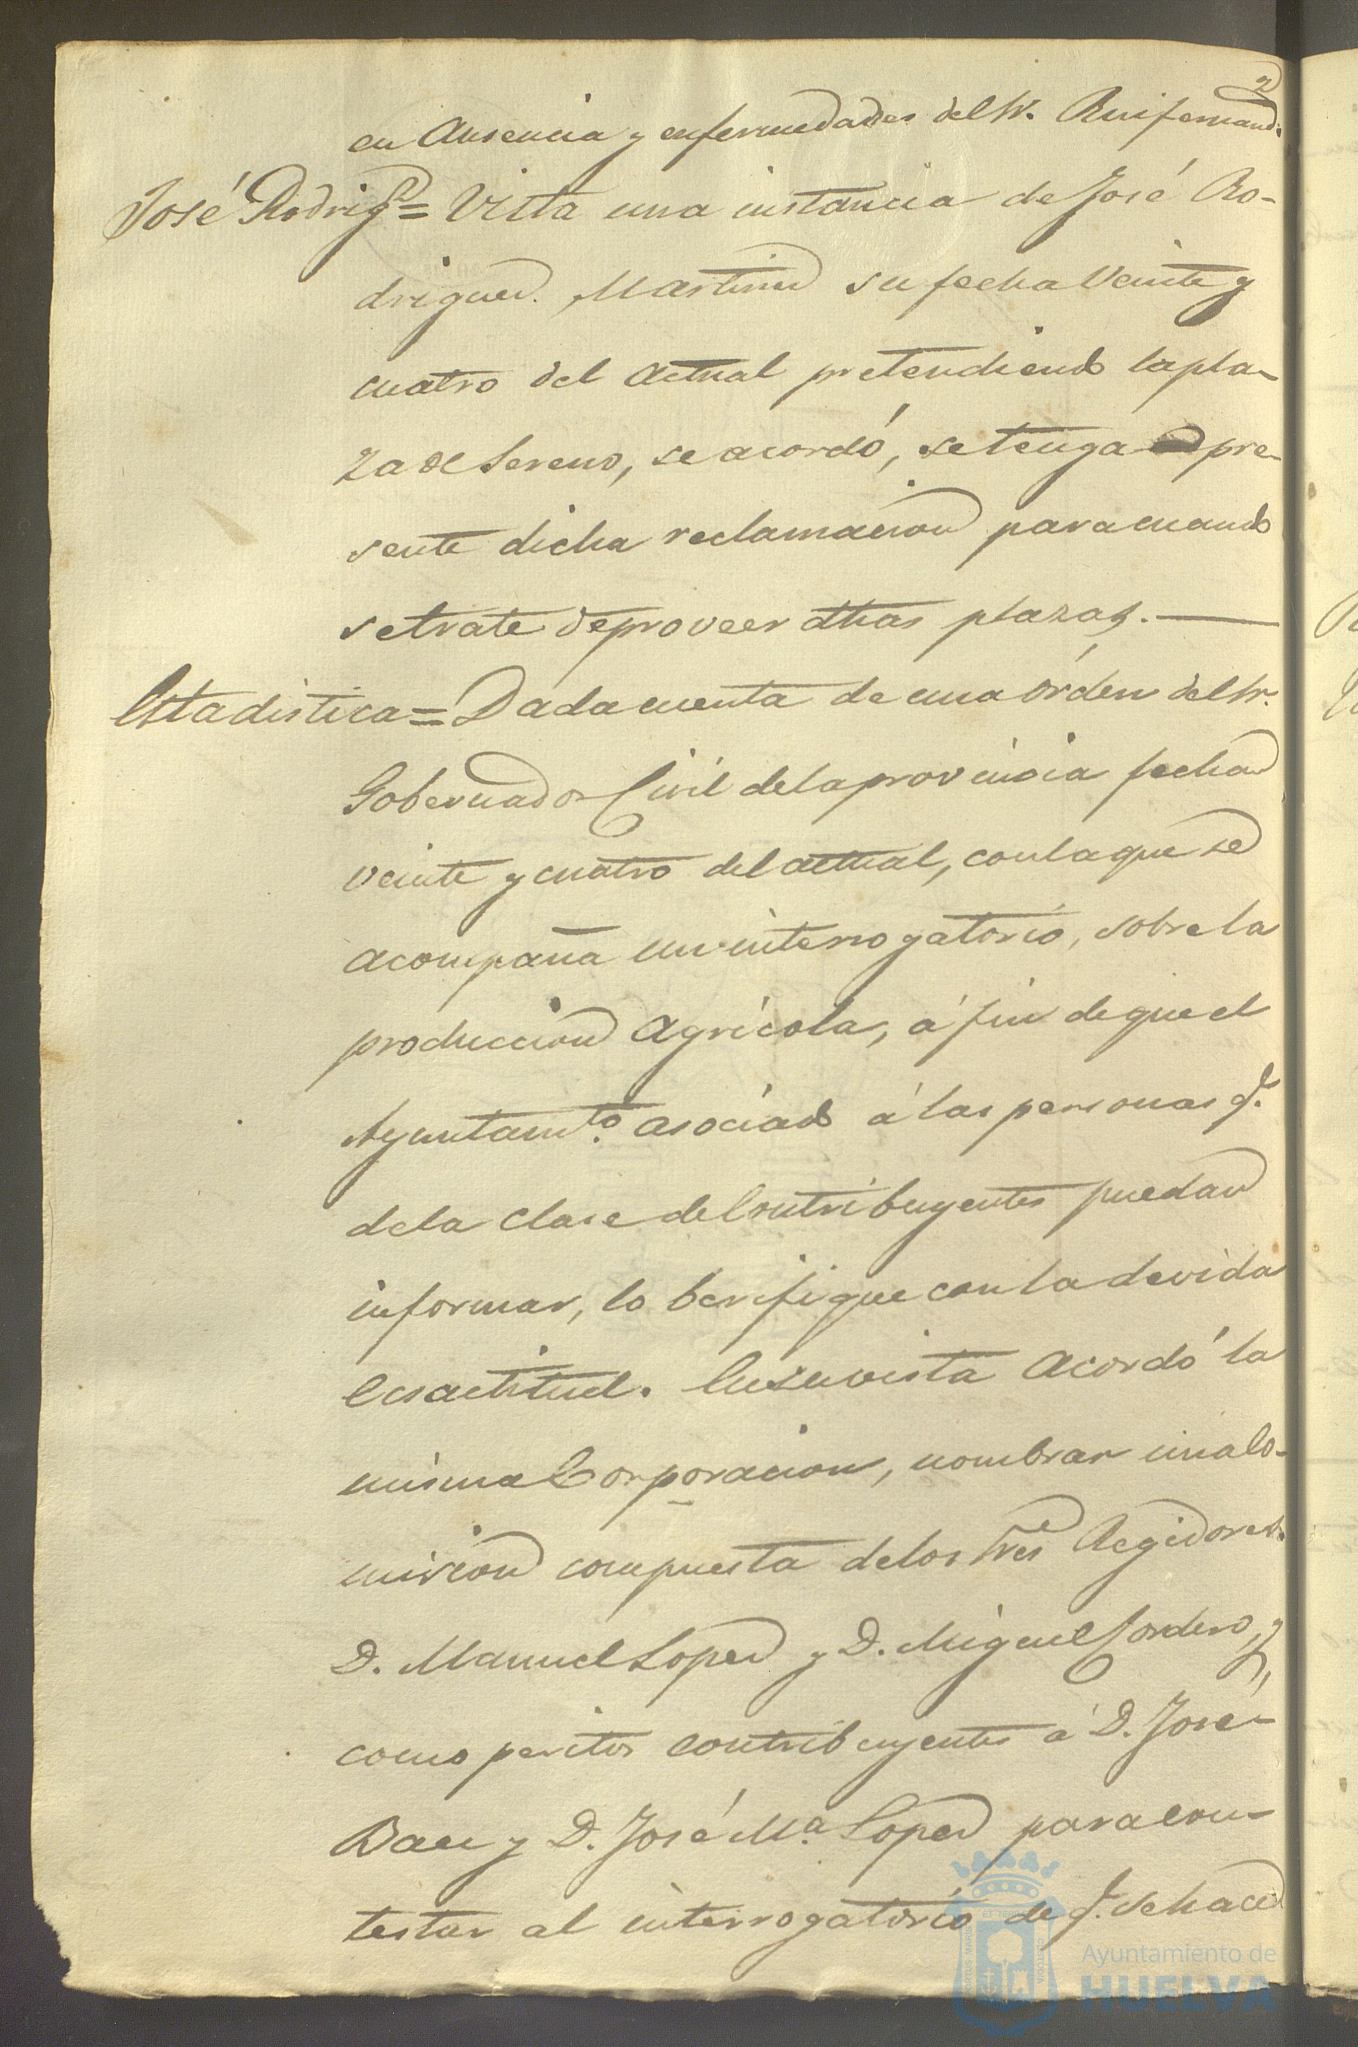 en Ausencia y enfermedades del Sr. Ruifernand.
José Rodrigz = Vista una instancia de José Ro-
driguez Martinez su fecha Veinte y
cuatro del actual pretendiendo la pla-
za de Sereno, se acordó, se tenga pre-
sente dicha reclamacion para cuando
se trate de proveer dhas plazas.
Estadistica = Dada cuenta de una órden del Sr.
Gobernador Civil de la provincia fecha
veinte y cuatro del actual, con la que se
acompaña un interrogatorio, sobre la
produccion Agricola, á fin de que el
Ayuntamto. asociado á las personas q.
de la clase de Contribuyentes puedan
informar, lo berifique con la devida
Ecsactitud. En su vista acordó la
misma Corporacion, nombrar una Co-
mision compuesta de los Sres Regidores
D. Manuel Lopez y D. Miguel Cordero, y,
como peritos contribuyentes á D. José
Baez y D. José Ma. Lopez para con-
testar al interrogatorio de q. se hace
Ayuntamiento de
HUELVA